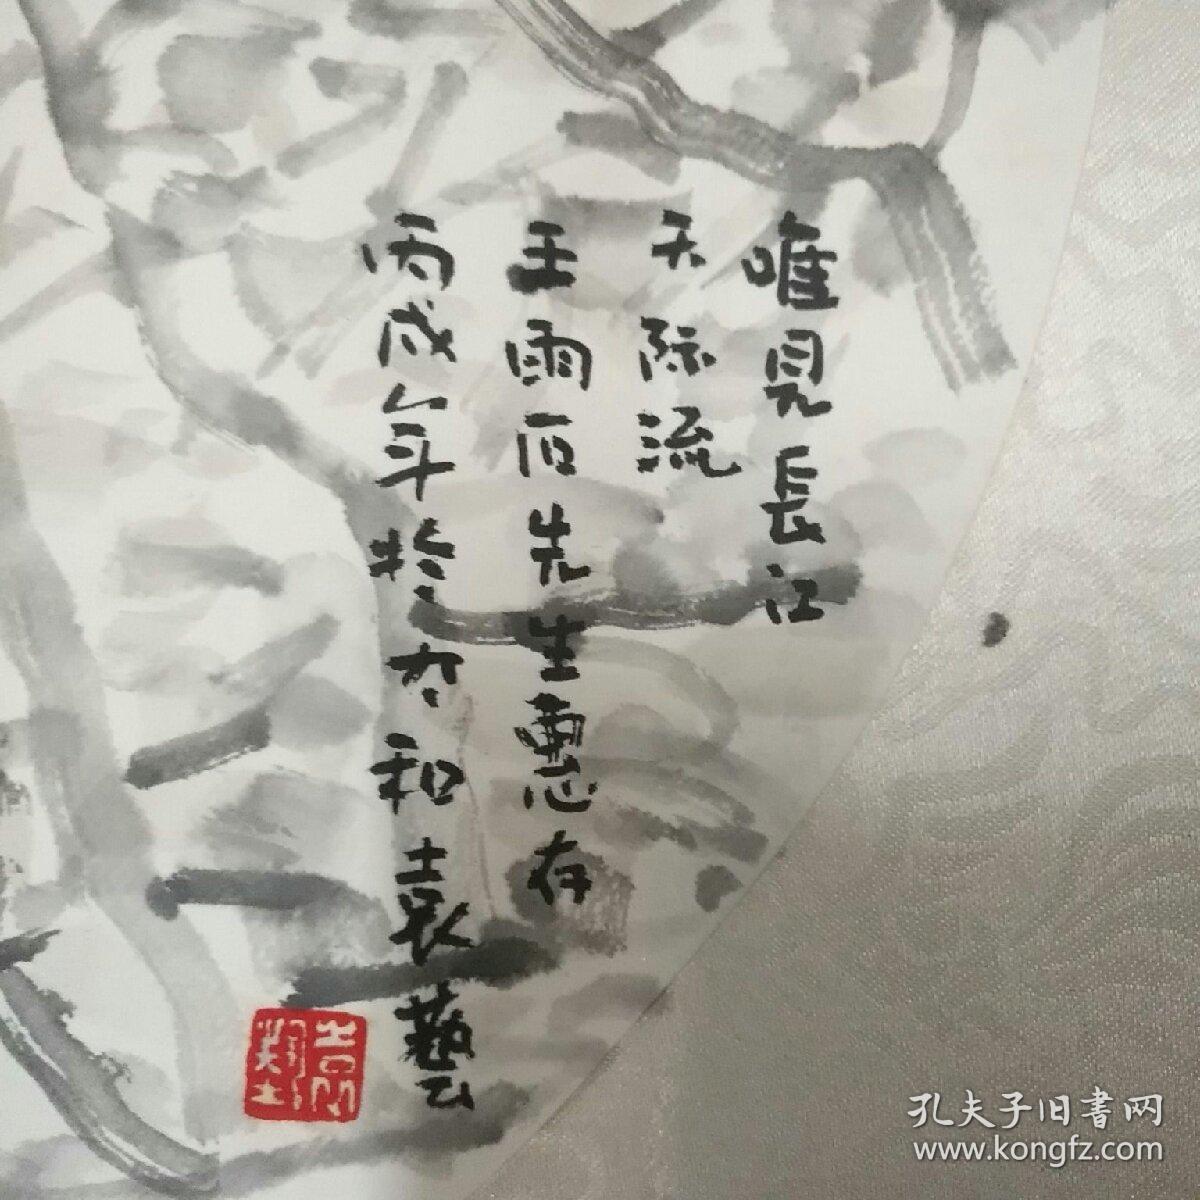 唯見長江
天际流
王雨石先生惠存
丙戌年於太和袁藝
孔夫子旧書网
www.kongfz.com